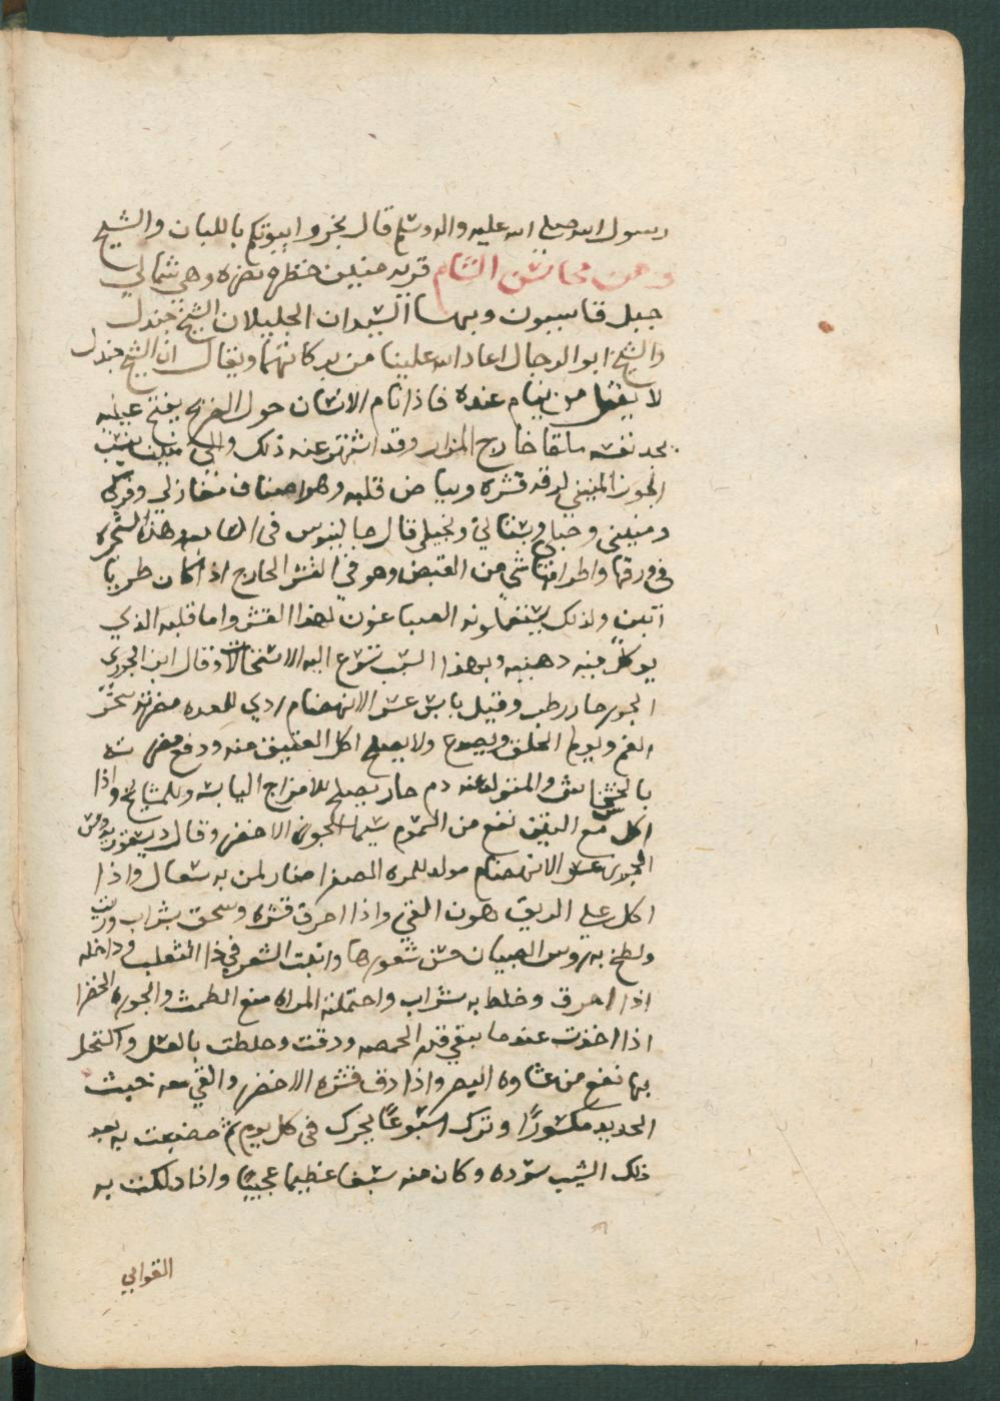 رسول الله صلى الله عليه واله وسلم قال بخروا بيوتكم باللبان والشيح
ومن محاسن الشام قريه منين خضره نضره وهي شمالي
جبل قاسيون وبها السيدان الجليلان الشيخ جندل
والشيخ ابو الرجال اعاد الله علينا من بركاتهما ويقال ان الشيخ جندل
لا يقبل من ينام عنده فاذا نام الانسان حول الضريح يفتح عينيه
يجد نفسه ملقا خارج المزار وقد اشتهر عنه ذلك والى منين ينسب
الجوز المنيني لرقه قشره وبياض قلبه وهو اصناف مغازلي وفركي
ومنيني وجبلي وبستاني ونخيلي قال جالينوس في هذه الشجره
في ورقها واطرافها شي من القبض وهو في القشر الخارج اذا كان طريا
ابين ولذلك يستعملونه الصباغون لهذا القشر واما قلبه الذي
يوكل منه دهنيه وبهذا السبب تسرع اليه الاستحالات وقال ابن الجوزي
الجوز حار رطب وقيل يابس عسر الانهضام ردي للمعده مضرته يبثر
الفم ويورم الحلق ويصدع ولا يصلح اكل العتيق منه ودفع مضرته
بالخشخاش والمتولد عنه دم حار يصلح للامزاج اليابسه وللمشايخ واذا
اكل مع التين نفع من السموم سيما الجوز الاخضر وقال ديسقوريدوس
الجوز عسر الانهضام مولد للمره الصفرا ضار لمن به سعال واذا
اكل على الريق هون القي واذا احرق قشره وسحق بشراب وزيت
ولطخ به روس الصبيان حسن شعورها وانبت الشعر في دا الثعلب وداخله
اذا احرق وخلط به شراب واحتملته المراه منع الطمث والجوزه الخضرا
اذا اخذت عندما يبقي قدر الحمصه ودقت وخلطت بالعسل واكتحل
بها نفع من غشاوه البصر واذا دق قشره الاخضر والقي معه خبث
الحديد مكسورًا وترك اسبوعًا يحرك في كل يوم ثم صبغت به بعد
ذلك الشيب سوده وكان منه عظيما عجيبًا واذا دلكت به
القوابي